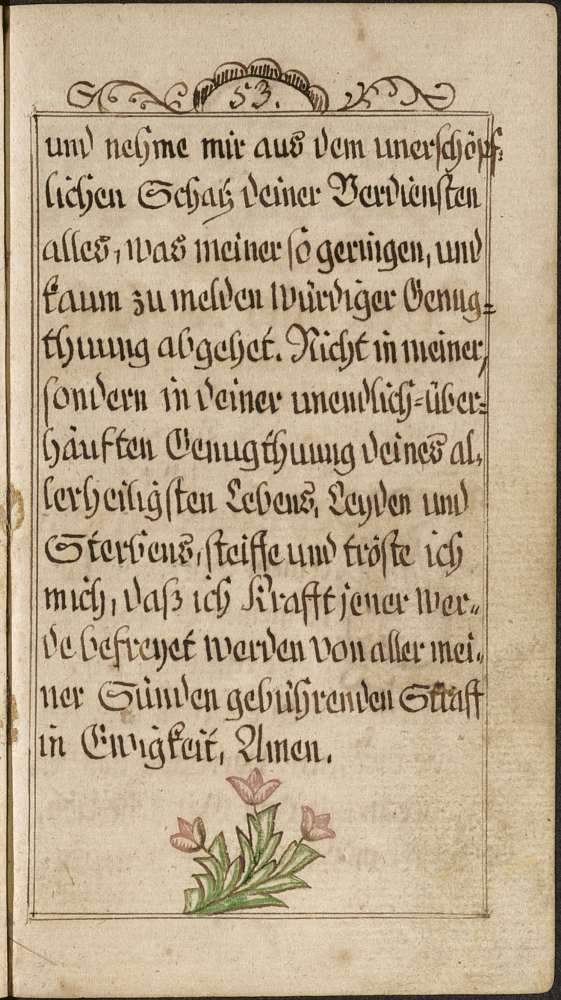 53.
und nehme mir aus dem unerschöpf-
lichen Schatz deiner Verdiensten
alles, was meiner so geringen, und
kaum zu melden würdiger Genug-
thuung abgehet. Nicht in meiner,
sondern in deiner unendlich-über-
häuften Genugthuung deines al-
lerheiligsten Lebens, Leyden und
Sterbens, steiffe und tröste ich
mich, daß ich Krafft jener wer-
de befreyet werden von aller mei-
ner Sünden gebührenden Straff
in Ewigkeit, Amen.